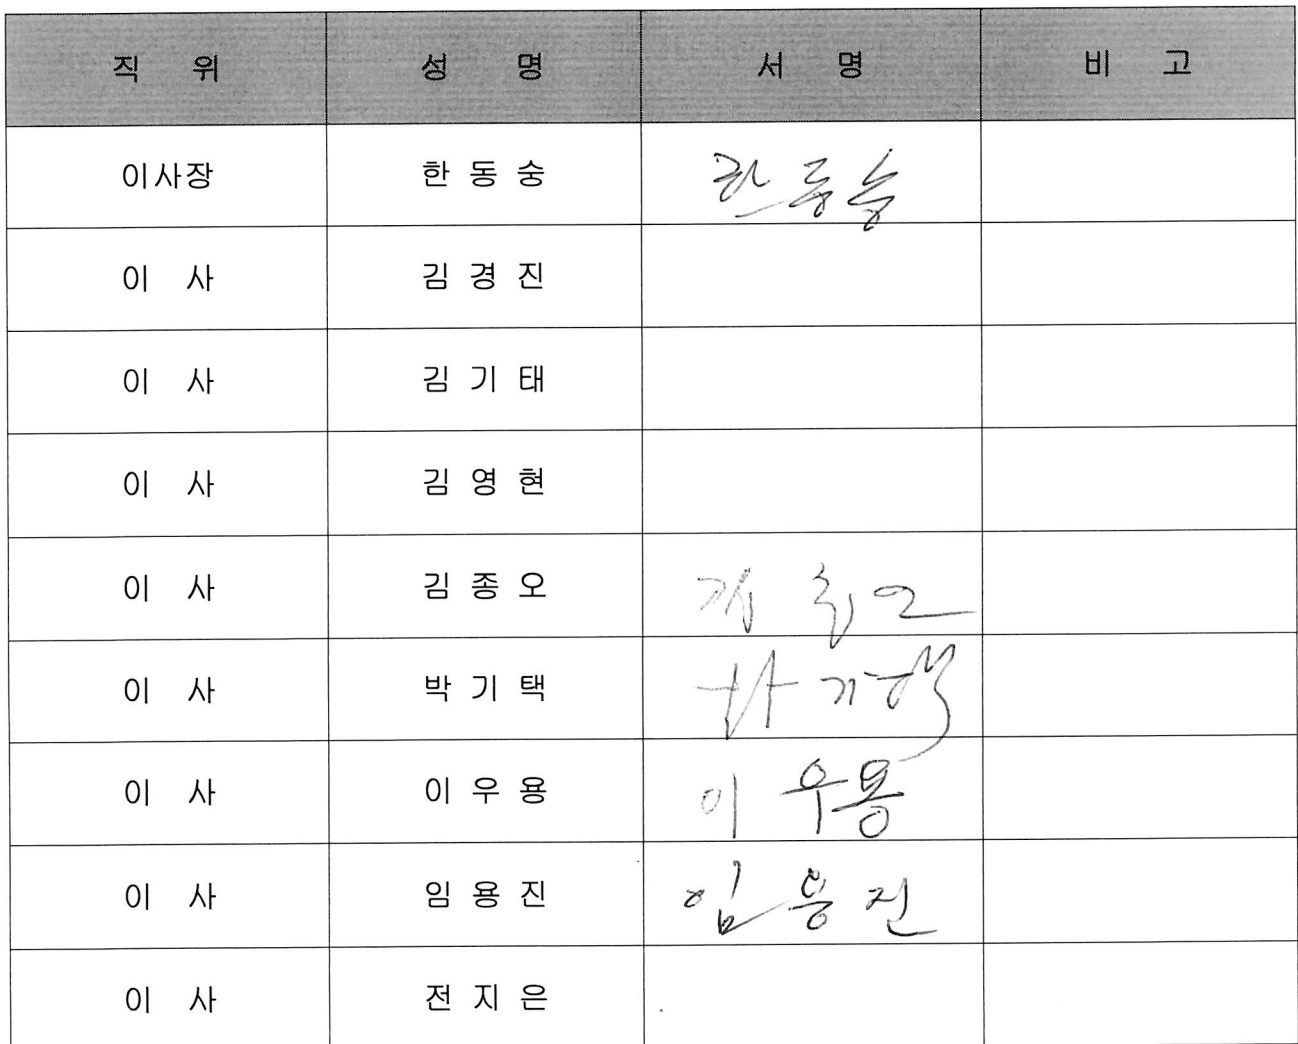 직 위 성 명 서 명 비 고
이사장 한 동 숭 한 동 숭
이 사 김 경 진
이 사 김 기 태
이 사 김 영 현
이 사 김 종 오 김 종 오
이 사 박 기 택 박 기 택
이 사 이 우 용 이 우 용
이 사 임 용 진 임 용 진
이 사 전 지 은